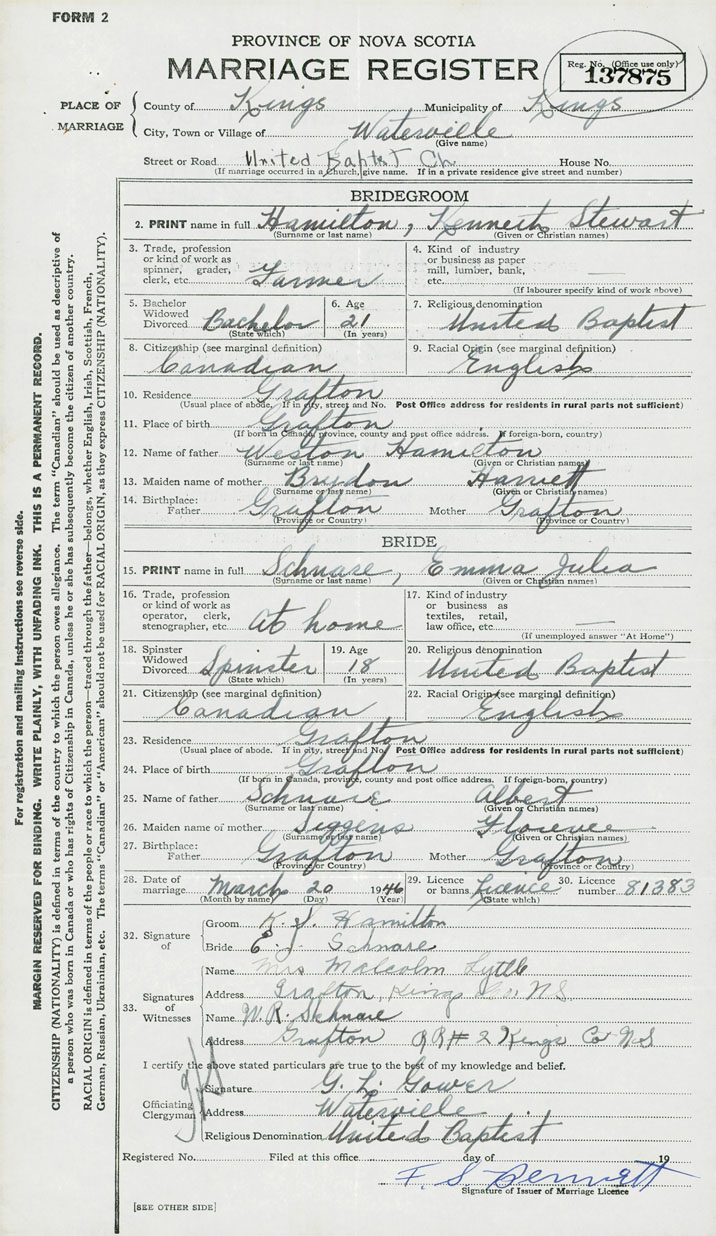 FORM 2
PROVINCE OF NOVA SCOTIA
MARRIAGE REGISTER
Reg. No. (Office use only)
137875
PLACE OF MARRIAGE
County of Kings Municipality of Kings
City, Town or Village of Waterville
(Give name)
Street or Road United Baptist Ch House No.
(If marriage occurred in a church, give name. If in a private residence give street and number)
BRIDEGROOM
2. PRINT name in full Hamilton, Kenneth Stewart
(Surname or last name) (Given or Christian names)
3. Trade, profession or kind of work as spinner, grader, clerk, etc. Farmer
4. Kind of industry or business as paper mill, lumber, bank, etc. —
(If labourer specify kind of work above)
5. Bachelor Widowed Divorced Bachelor
(State which)
6. Age 21
(In years)
7. Religious denomination
United Baptist
8. Citizenship (see marginal definition)
Canadian
9. Racial Origin (see marginal definition)
English
10. Residence Grafton
(Usual place of abode. If in city, street and No. Post Office address for residents in rural parts not sufficient)
11. Place of birth Grafton
(If born in Canada, province, county and post office address. If foreign-born, country)
12. Name of father Weston Hamilton
(Surname or last name) (Given or Christian names)
13. Maiden name of mother Brydon Harriett
(Surname or last name) (Given or Christian names)
14. Birthplace:
Father Grafton Mother Grafton
(Province or Country) (Province or Country)
BRIDE
15. PRINT name in full Schnare, Emma Julia
(Surname or last name) (Given or Christian names)
16. Trade, profession or kind of work as operator, clerk, stenographer, etc. At home
17. Kind of industry or business as textiles, retail, law office, etc. —
(If unemployed answer "At Home")
18. Spinster Widowed Divorced Spinster
(State which)
19. Age 18
(In years)
20. Religious denomination
United Baptist
21. Citizenship (see marginal definition)
Canadian
22. Racial Origin (see marginal definition)
English
23. Residence Grafton
(Usual place of abode. If in city, street and No. Post Office address for residents in rural parts not sufficient)
24. Place of birth Grafton
(If born in Canada, province, county and post office address. If foreign-born, country)
25. Name of father Schnare Albert
(Surname or last name) (Given or Christian names)
26. Maiden name of mother Siggens Florence
(Surname or last name) (Given or Christian names)
27. Birthplace:
Father Grafton Mother Grafton
(Province or Country) (Province or Country)
28. Date of marriage March 20 1946
(Month by name) (Day) (Year)
29. Licence or banns. Licence
(State which)
30. Licence number 81383
32. Signature of
Groom K. S. Hamilton
Bride E. J. Schnare
33. Signatures of Witnesses
Name Mrs Malcolm Lyttle
Address Grafton, Kings Co., NS
Name W. R. Schnare
Address Grafton RR# 2 Kings Co NS
I certify the above stated particulars are true to the best of my knowledge and belief.
Officiating Clergyman
Signature G. L. Gower
Address Waterville
Religious Denomination United Baptist
Registered No. Filed at this office day of 19
F. S. Bennett
Signature of Issuer of Marriage Licence
[SEE OTHER SIDE]
For registration and mailing instructions see reverse side.
MARGIN RESERVED FOR BINDING. WRITE PLAINLY, WITH UNFADING INK. THIS IS A PERMANENT RECORD.
CITIZENSHIP (NATIONALITY) is defined in terms of the country to which the person owes allegiance. The term "Canadian" should be used as descriptive of
a person who was born in Canada or who has rights of Citizenship in Canada, unless he or she has subsequently become the citizen of another country.
RACIAL ORIGIN is defined in terms of the people or race to which the person—traced through the father—belongs, whether English, Irish, Scottish, French,
German, Russian, Ukrainian, etc. The terms "Canadian" or "American" should not be used for RACIAL ORIGIN, as they express CITIZENSHIP (NATIONALITY).